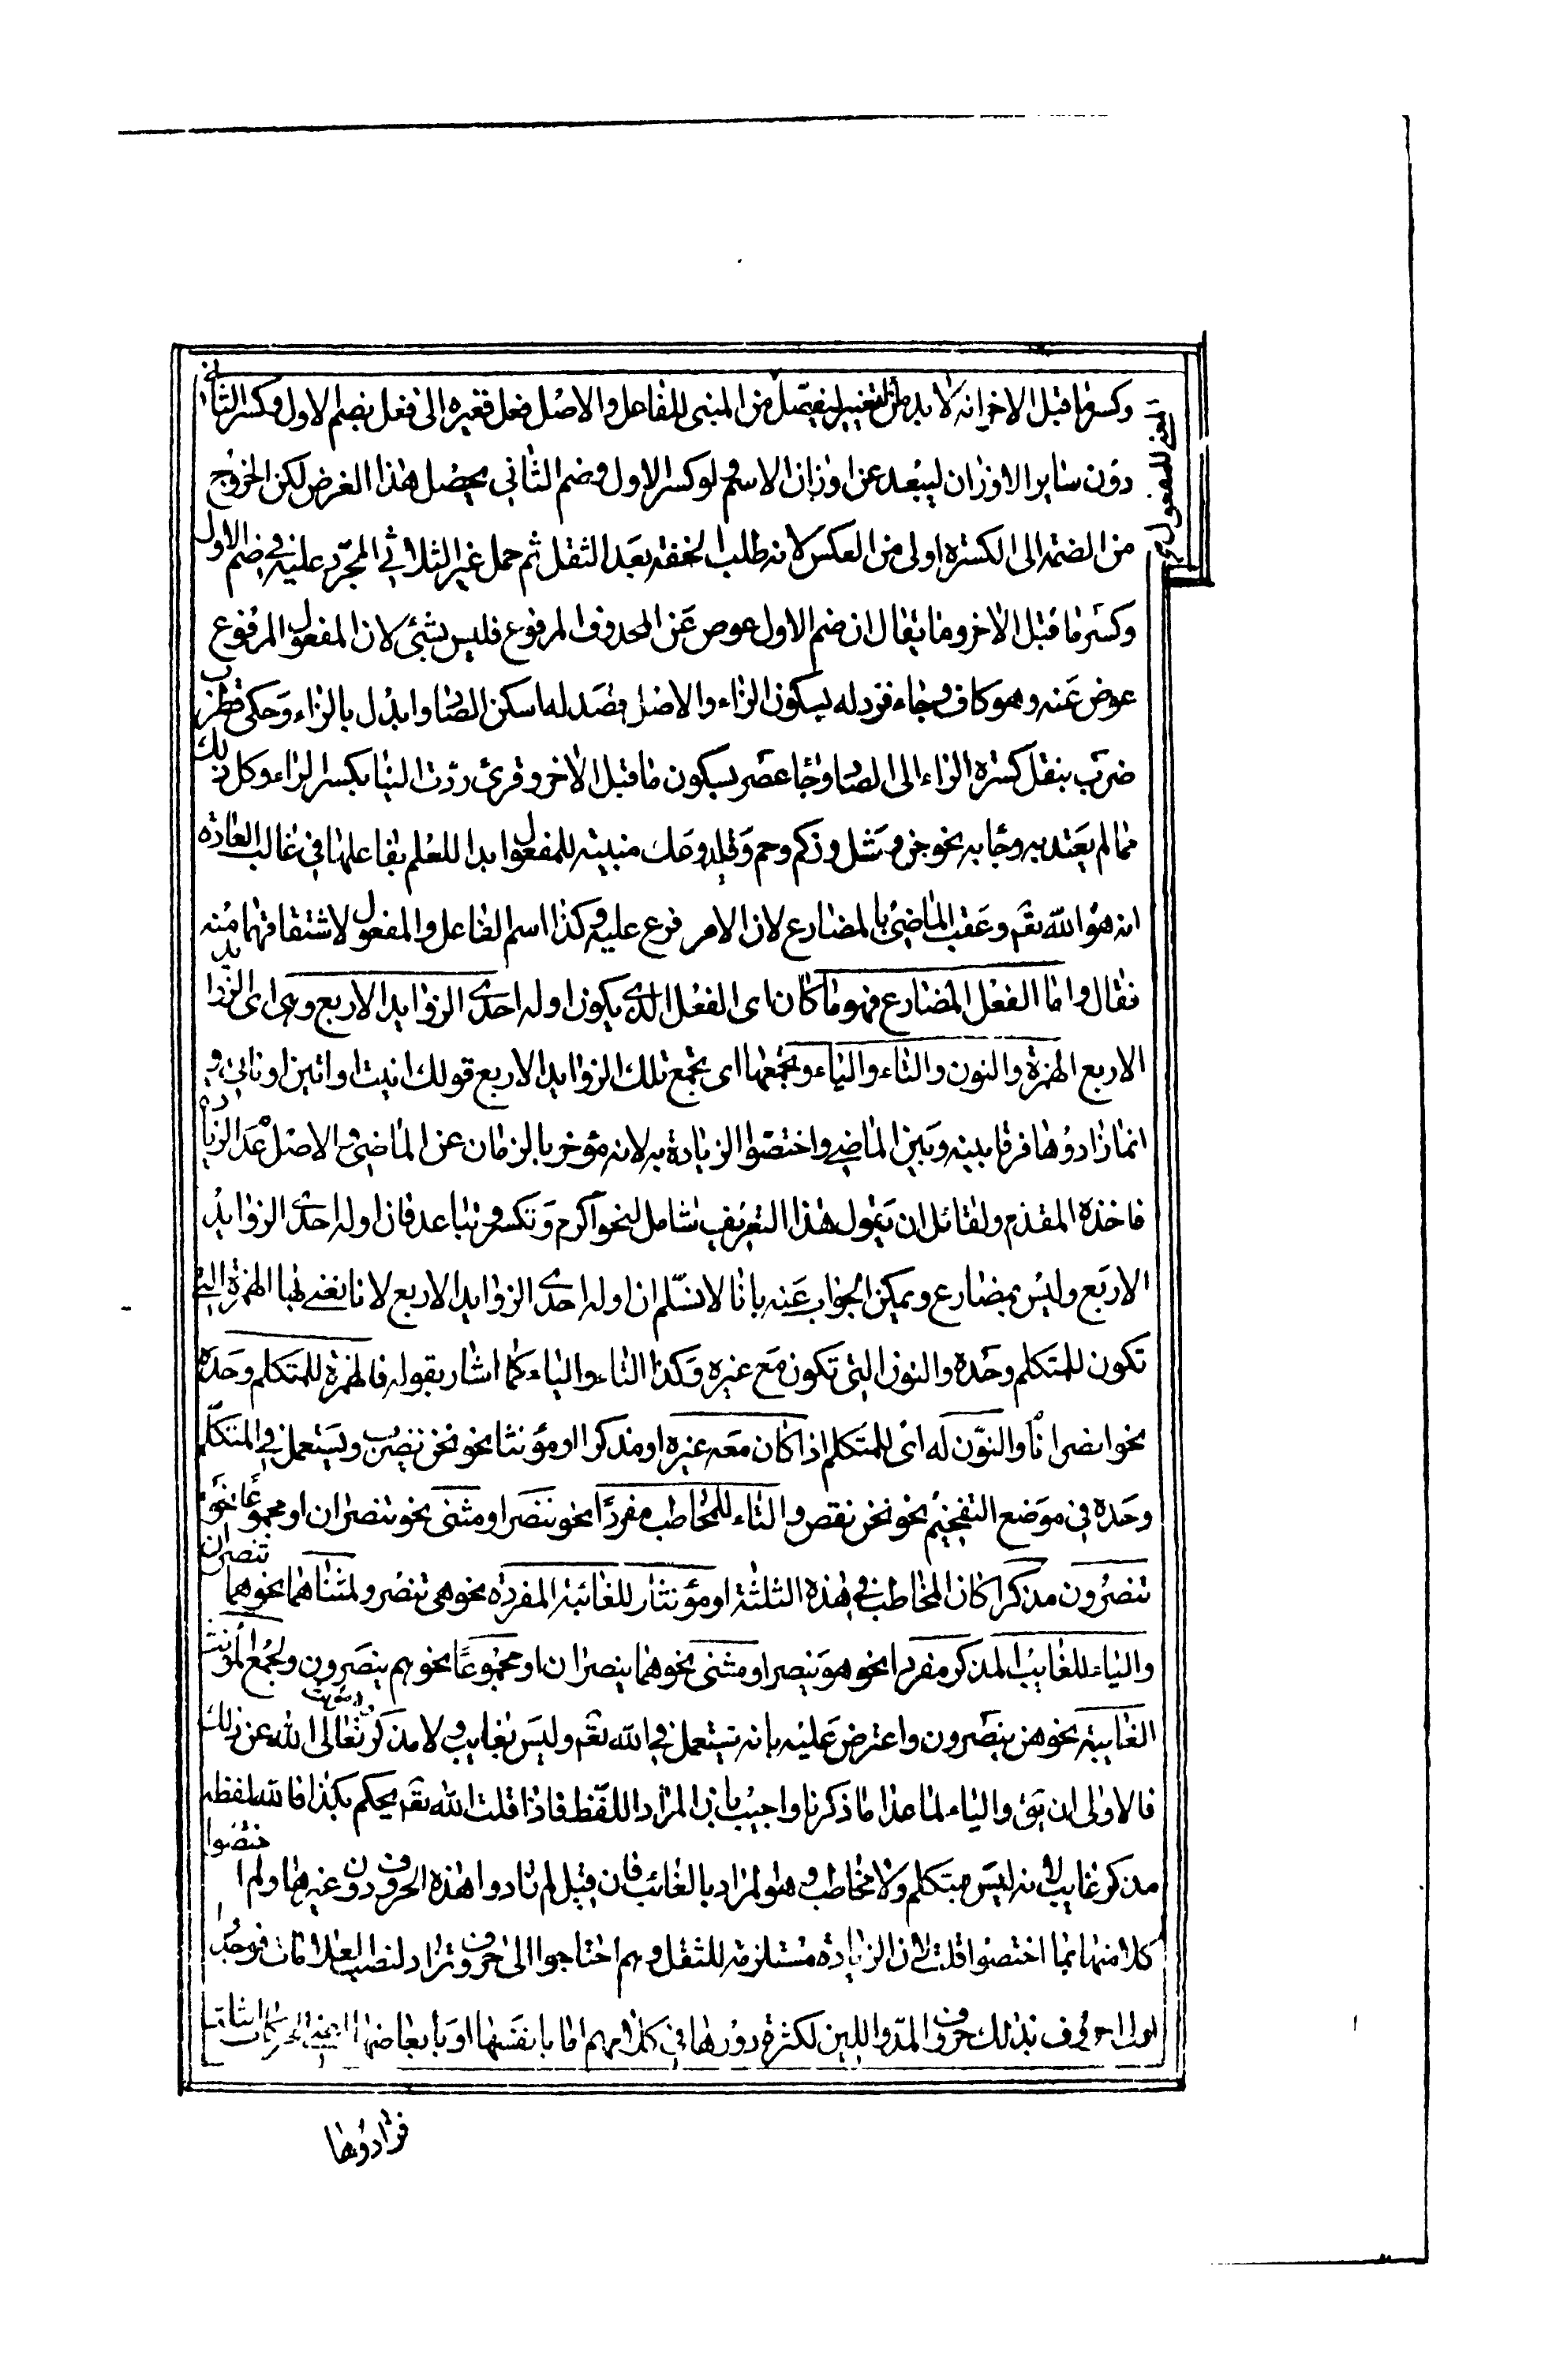 وكسر ما قبل الاخر انه لا بد من تغيير ليفصل من المبنى للفاعل والاصل فعل فغيره الى فعل بضم الاول وكسر الثاني
دون ساير الاوزان ليبعد عن اوزان الاسم ولو كسر الاول وضم الثاني يحصل هذا الغرض لكن الخروج
من الضمة الى الكسرة اولى من العكس لانه طلب الخفة بعد الثقل ثم حمل غير الثلاثي المجرد عليه في ضم الاول
وكسر ما قبل الاخر وما يقال ان ضم الاول عوض عن المحذوف المرفوع فليس بشئ لان المفعول المرفوع
عوض عنه وهو كاف وجاء فزد له بسكون الزاء والاصل فصد له اسكن الصاد وابدل بالزاء وحكى قطرب
ضرب بنقل كسرة الراء الى الضاد وجاء عصر بسكون ما قبل الاخر وقرئ ردت الينا بكسر الراء وكل ذلك
مما لم يعتد به وجاء به نحو جن وسل وزكم وحم وفلج ووعك مبنية للمفعول ابدا للعلم بفاعلها في غالب العادة
انه هو الله تعم وعقب الماضي بالمضارع لان الامر فرع عليه وكذا اسم الفاعل والمفعول لاشتقاقهما منه
فقال واما الفعل المضارع فهو ما كان اى الفعل الذي يكون اوله احدى الزوايد الاربع وهى اى الزوايد
الاربع الهمزة والنون والتاء والياء ويجمعها اى يجمع تلك الزوايد الاربع قولك انيت او اتين او نأتي و
انما زادوها فرقا بينه وبين الماضي واختصوا الزيادة به لانه مؤخر بالزمان عن الماضي والاصل عدم الزيادة
فاخذه المقدم ولقائل ان يقول هذا التعريف شامل لنحو اكرم وتكسر وتباعد فان اوله احدى الزوايد
الاربع وليس بمضارع ويمكن الجواب عنه بانا لا نسلم ان اوله احدى الزوايد الاربع لانا نعني بها الهمزة التي
تكون للمتكلم وحده والنون التي تكون مع غيره وكذا التاء والياء كما اشار بقوله فالهمزة للمتكلم وحده
نحو انصر انا والنون له اى للمتكلم اذا كان معه غيره او مذكرا او مؤنثا نحو نحن ننصر ويستعمل في المتكلم
وحده في موضع التفخيم نحو نحن نقص والتاء للمخاطب مفردا نحو تنصر او مثنى نحو تنصران او مجموعا نحو
تنصرون مذكرا كان المخاطب في هذه الثلثة او مؤنثا وللغائبة المفردة نحو هي تنصر ولمثناها نحو هما تنصران
والياء للغايب المذكر مفردا نحو هو ينصر او مثنى نحو هما ينصران او مجموعا نحو هم ينصرون ولجمع المؤنث
الغايبة نحو هن ينصرون واعترض عليه بانه يستعمل في الله تعم وليس بغايب ولا مذكر ولا مؤنث تعالى الله عن ذلك
فالاولى ان يق والياء لما عدا ما ذكرنا واجيب بان المراد اللفظ فاذا قلت الله تعم يحكم بكذا فالله لفظه
مذكر غايب لانه ليس بمتكلم ولا مخاطب وهو المراد بالغائب فان قيل لم زادوا هذه الحروف دون غيرها ولم اختصوا
كلا منها بما اختصوا قلت لان الزيادة مستلزمة للثقل وهم احتاجوا الى حروف تزاد لنصب العلامات فوجدوا
اولى الحروف بذلك حروف المد واللين لكثرة دورها في كلامهم اما بانفسها او بابعاضها اعني الحركات الثلث
فزادوها